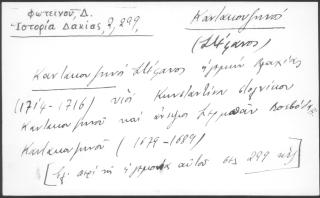 Φωτεινοῦ, Δ.
Ἱστορία Δακίας, 2, 299,
Καντακουζηνός
(Στέφανος)
Καντακουζηνός Στέφανος ἡγεμών Βλαχίας
(1714-1716) υἱός Κωνσταντίνου στολνίκου
Καντακουζηνοῦ καί ἀνεψιός Σερμπάν Βοεβόδα
Καντακουζηνοῦ (1679-1689)
[Σχ. περί τῆς ἡγεμονίας αὐτοῦ στίς 299 κἑξ]